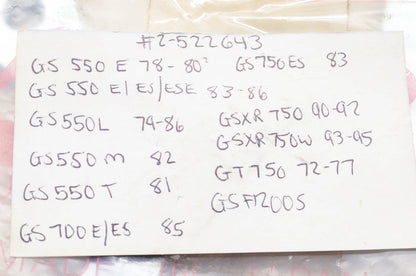 #2-522643
GS 550 E 78-80 GS750ES 83
GS 550 E/ES/ESE 83-86
GS550L 79-86
GSXR 750 90-92
GSXR 750W 93-95
GS550M 82
GT750 72-77
GS550T 81
GSF1200S
GS700E/ES 85